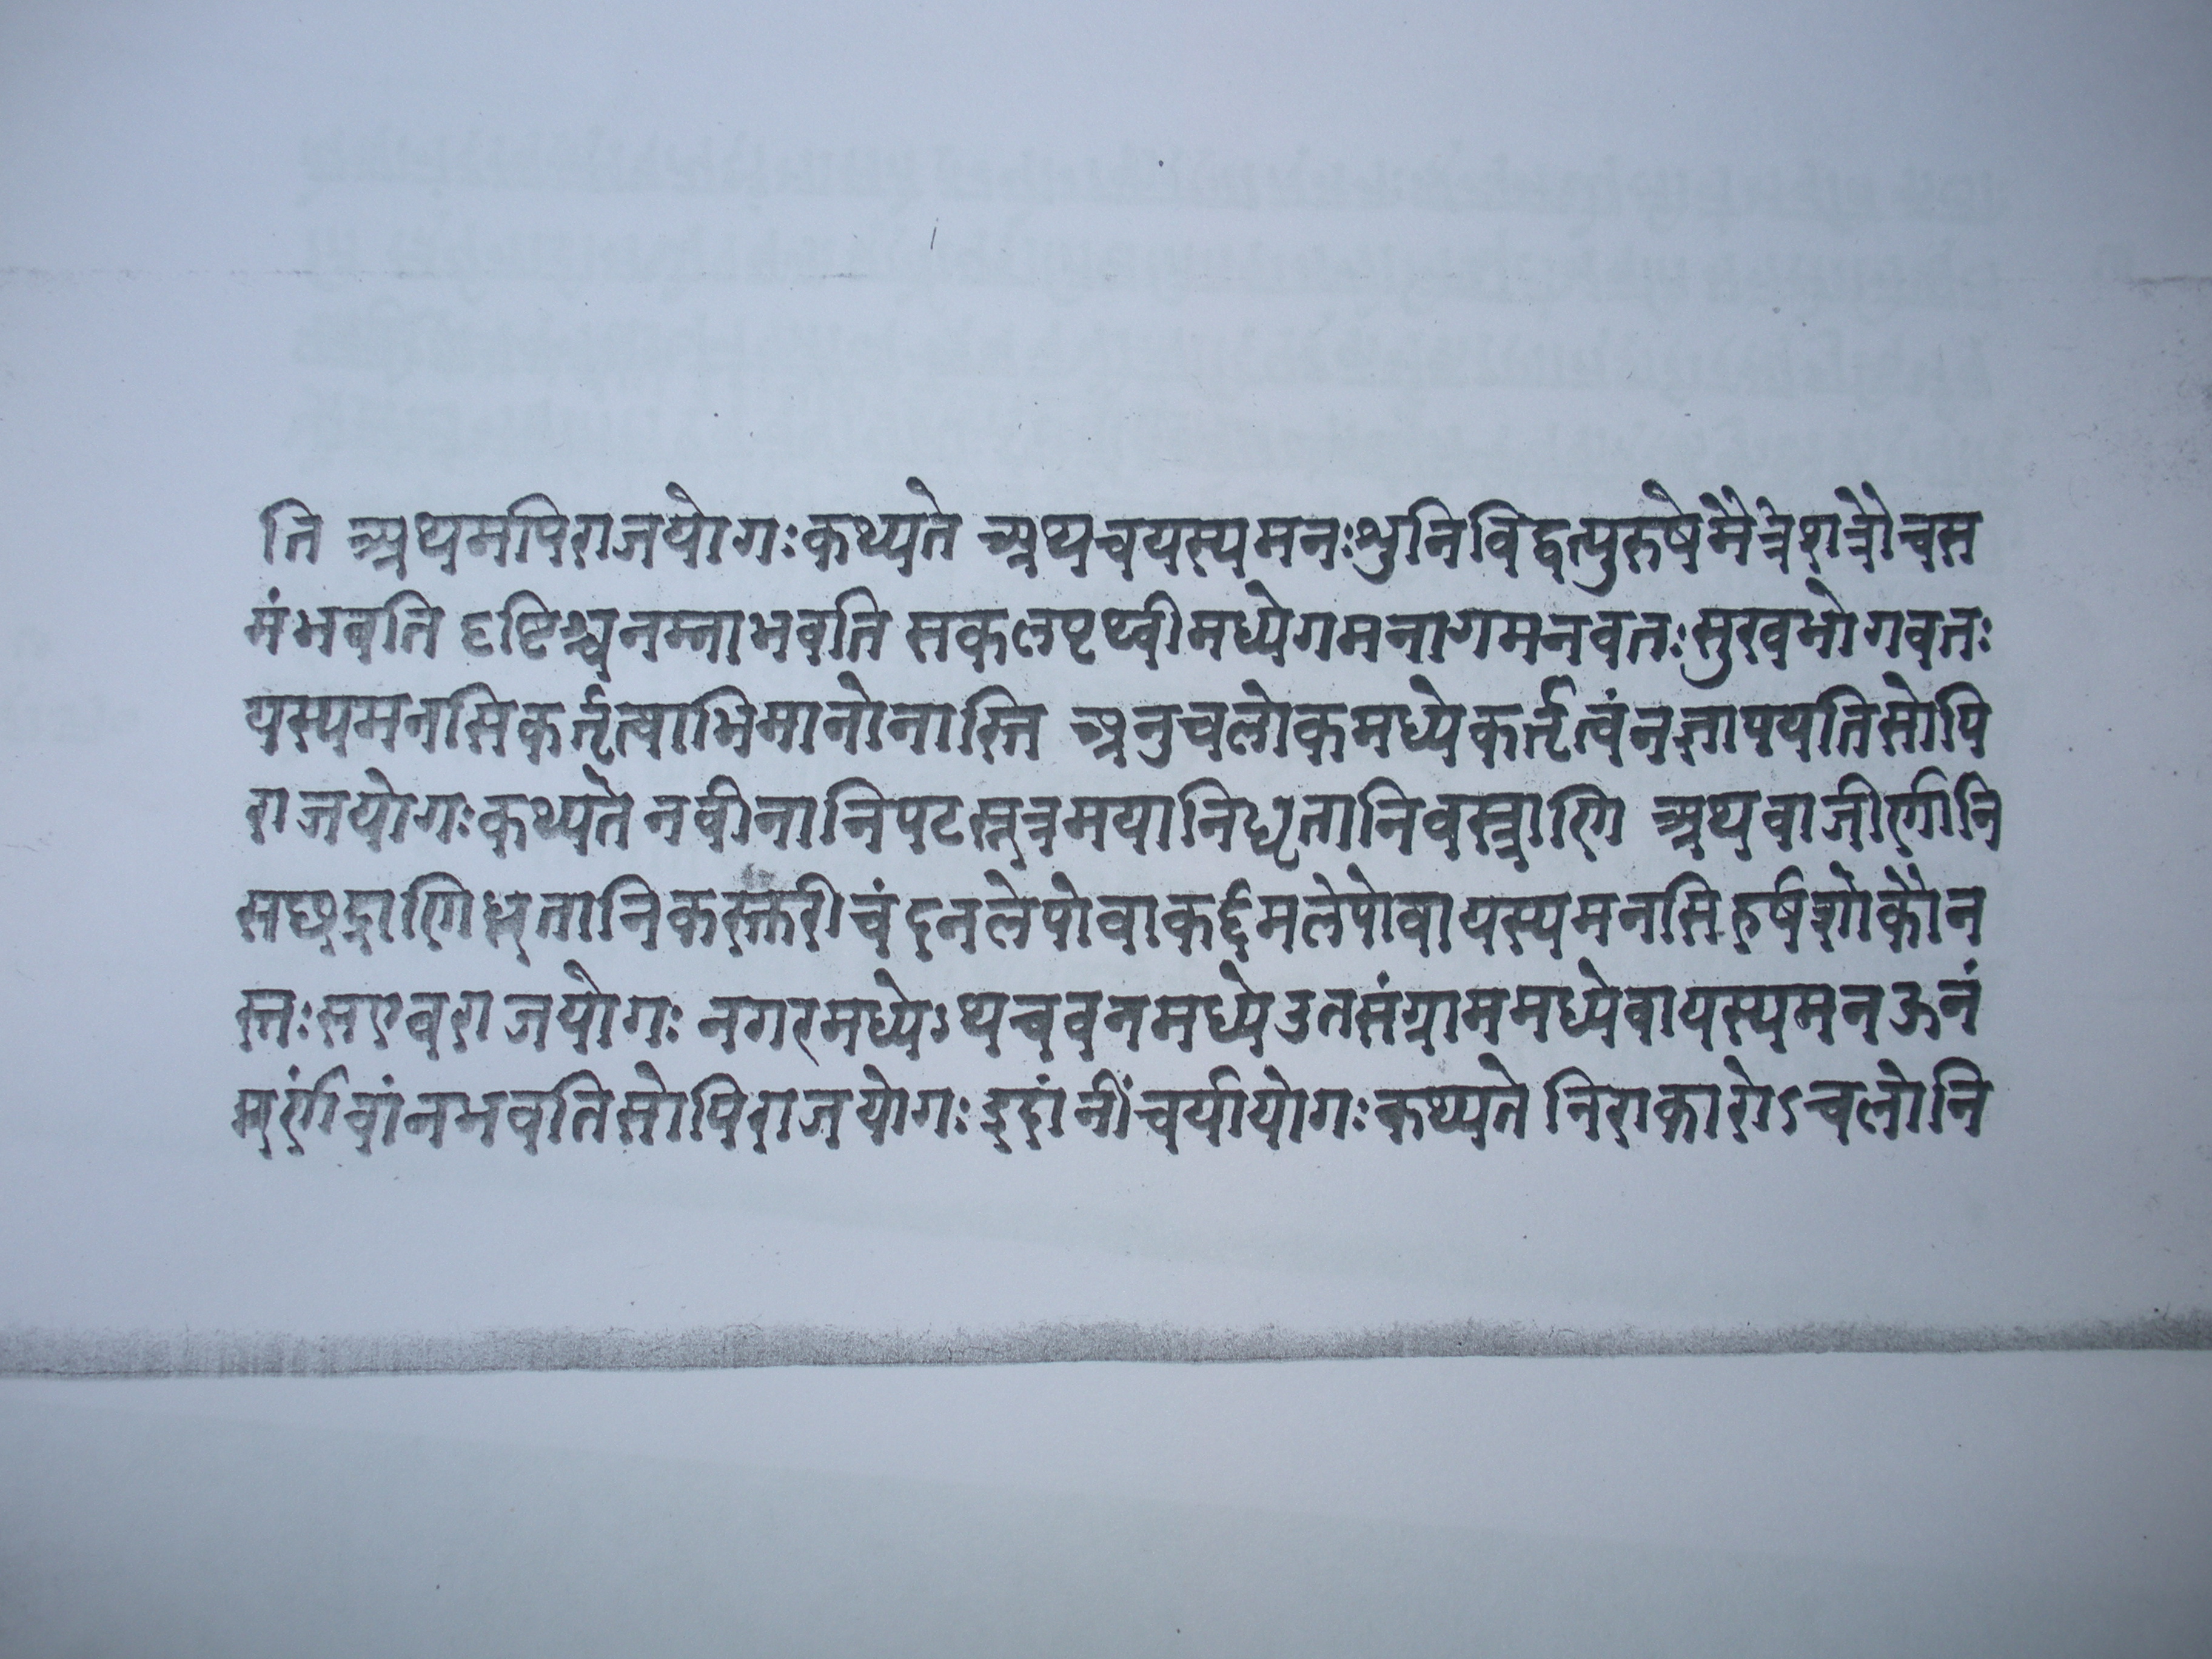 ति अथमपिराजयोगःकथ्यते अथचयस्यमनःशुनिविद्वत्पुरुषेमैत्रेशत्रौचस
मंभवति दृष्टिश्चनम्नाभवति सकलपृथ्वीमध्येगमनागमनवतःसुखभोगवतः
यस्यमनसिकर्त्तृत्वाभिमानोनास्ति अनुचलोकमध्येकर्त्तृत्वंनज्ञापयतिसोपि
राजयोगःकथ्यते नवीनानिपटसूत्रमयानिधृतानिवस्त्राणि अथवाजीर्णानि
सछद्राणिधृतानिकस्तूरीचंदनलेपोवाकर्द्दमलेपोवायस्यमनसिहर्षशोकौन
स्तःसएवराजयोगः नगरमध्येऽथचवनमध्येउतसंग्राममध्येवायस्यमनऊनं
म्पूर्णंवांनभवतिसोपिराजयोगः इदांनींचर्यायोगःकथ्यते निराकारोऽचलोनि